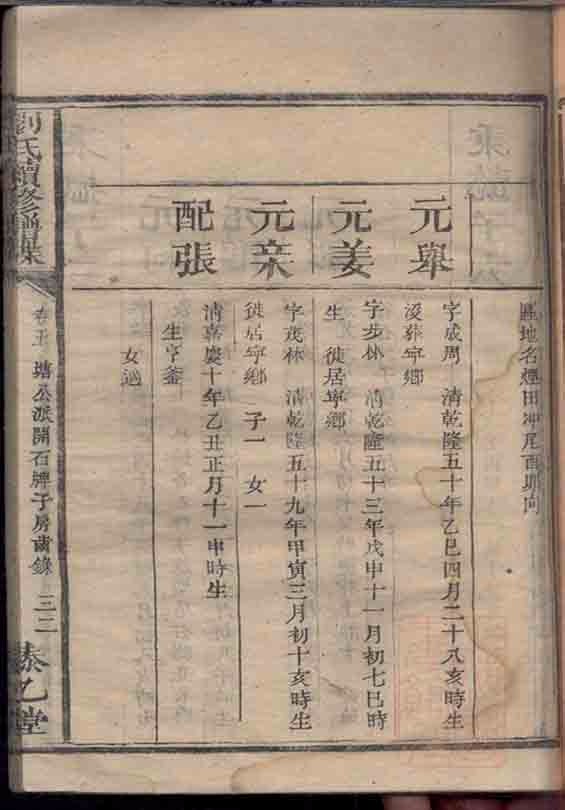 區地名煙田冲尾酉卯向
元舉
字成周 清乾隆五十年乙巳四月二十八亥時生
没葬宁鄉
元姜
字步林 清乾隆五十三年戊申十一月初七巳時
生 徙居寧鄉
元亲
字茂林 清乾隆五十九年甲寅三月初十亥時生
徙居宁鄉 子一 女一
配張
清嘉慶十年乙丑正月十一申時生
生亨釜
女適
劉氏續修譜牒
卷五 塘公派開石牌子房齒錄 三二
泰乙堂